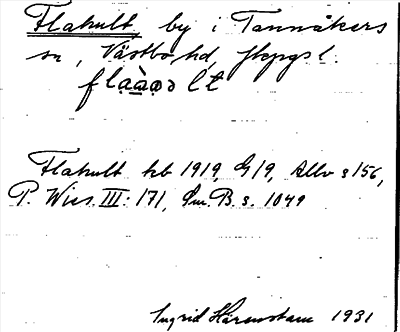 Flahult, by i Tannåkers
sn, Västbo hd, Jkpgs l.
flaàaolt
Flahult kb 1919, G19, Allv s 156,
P. Wies. III: 171, Sm. B. s. 1049
Ingrid Hårenstam 1931